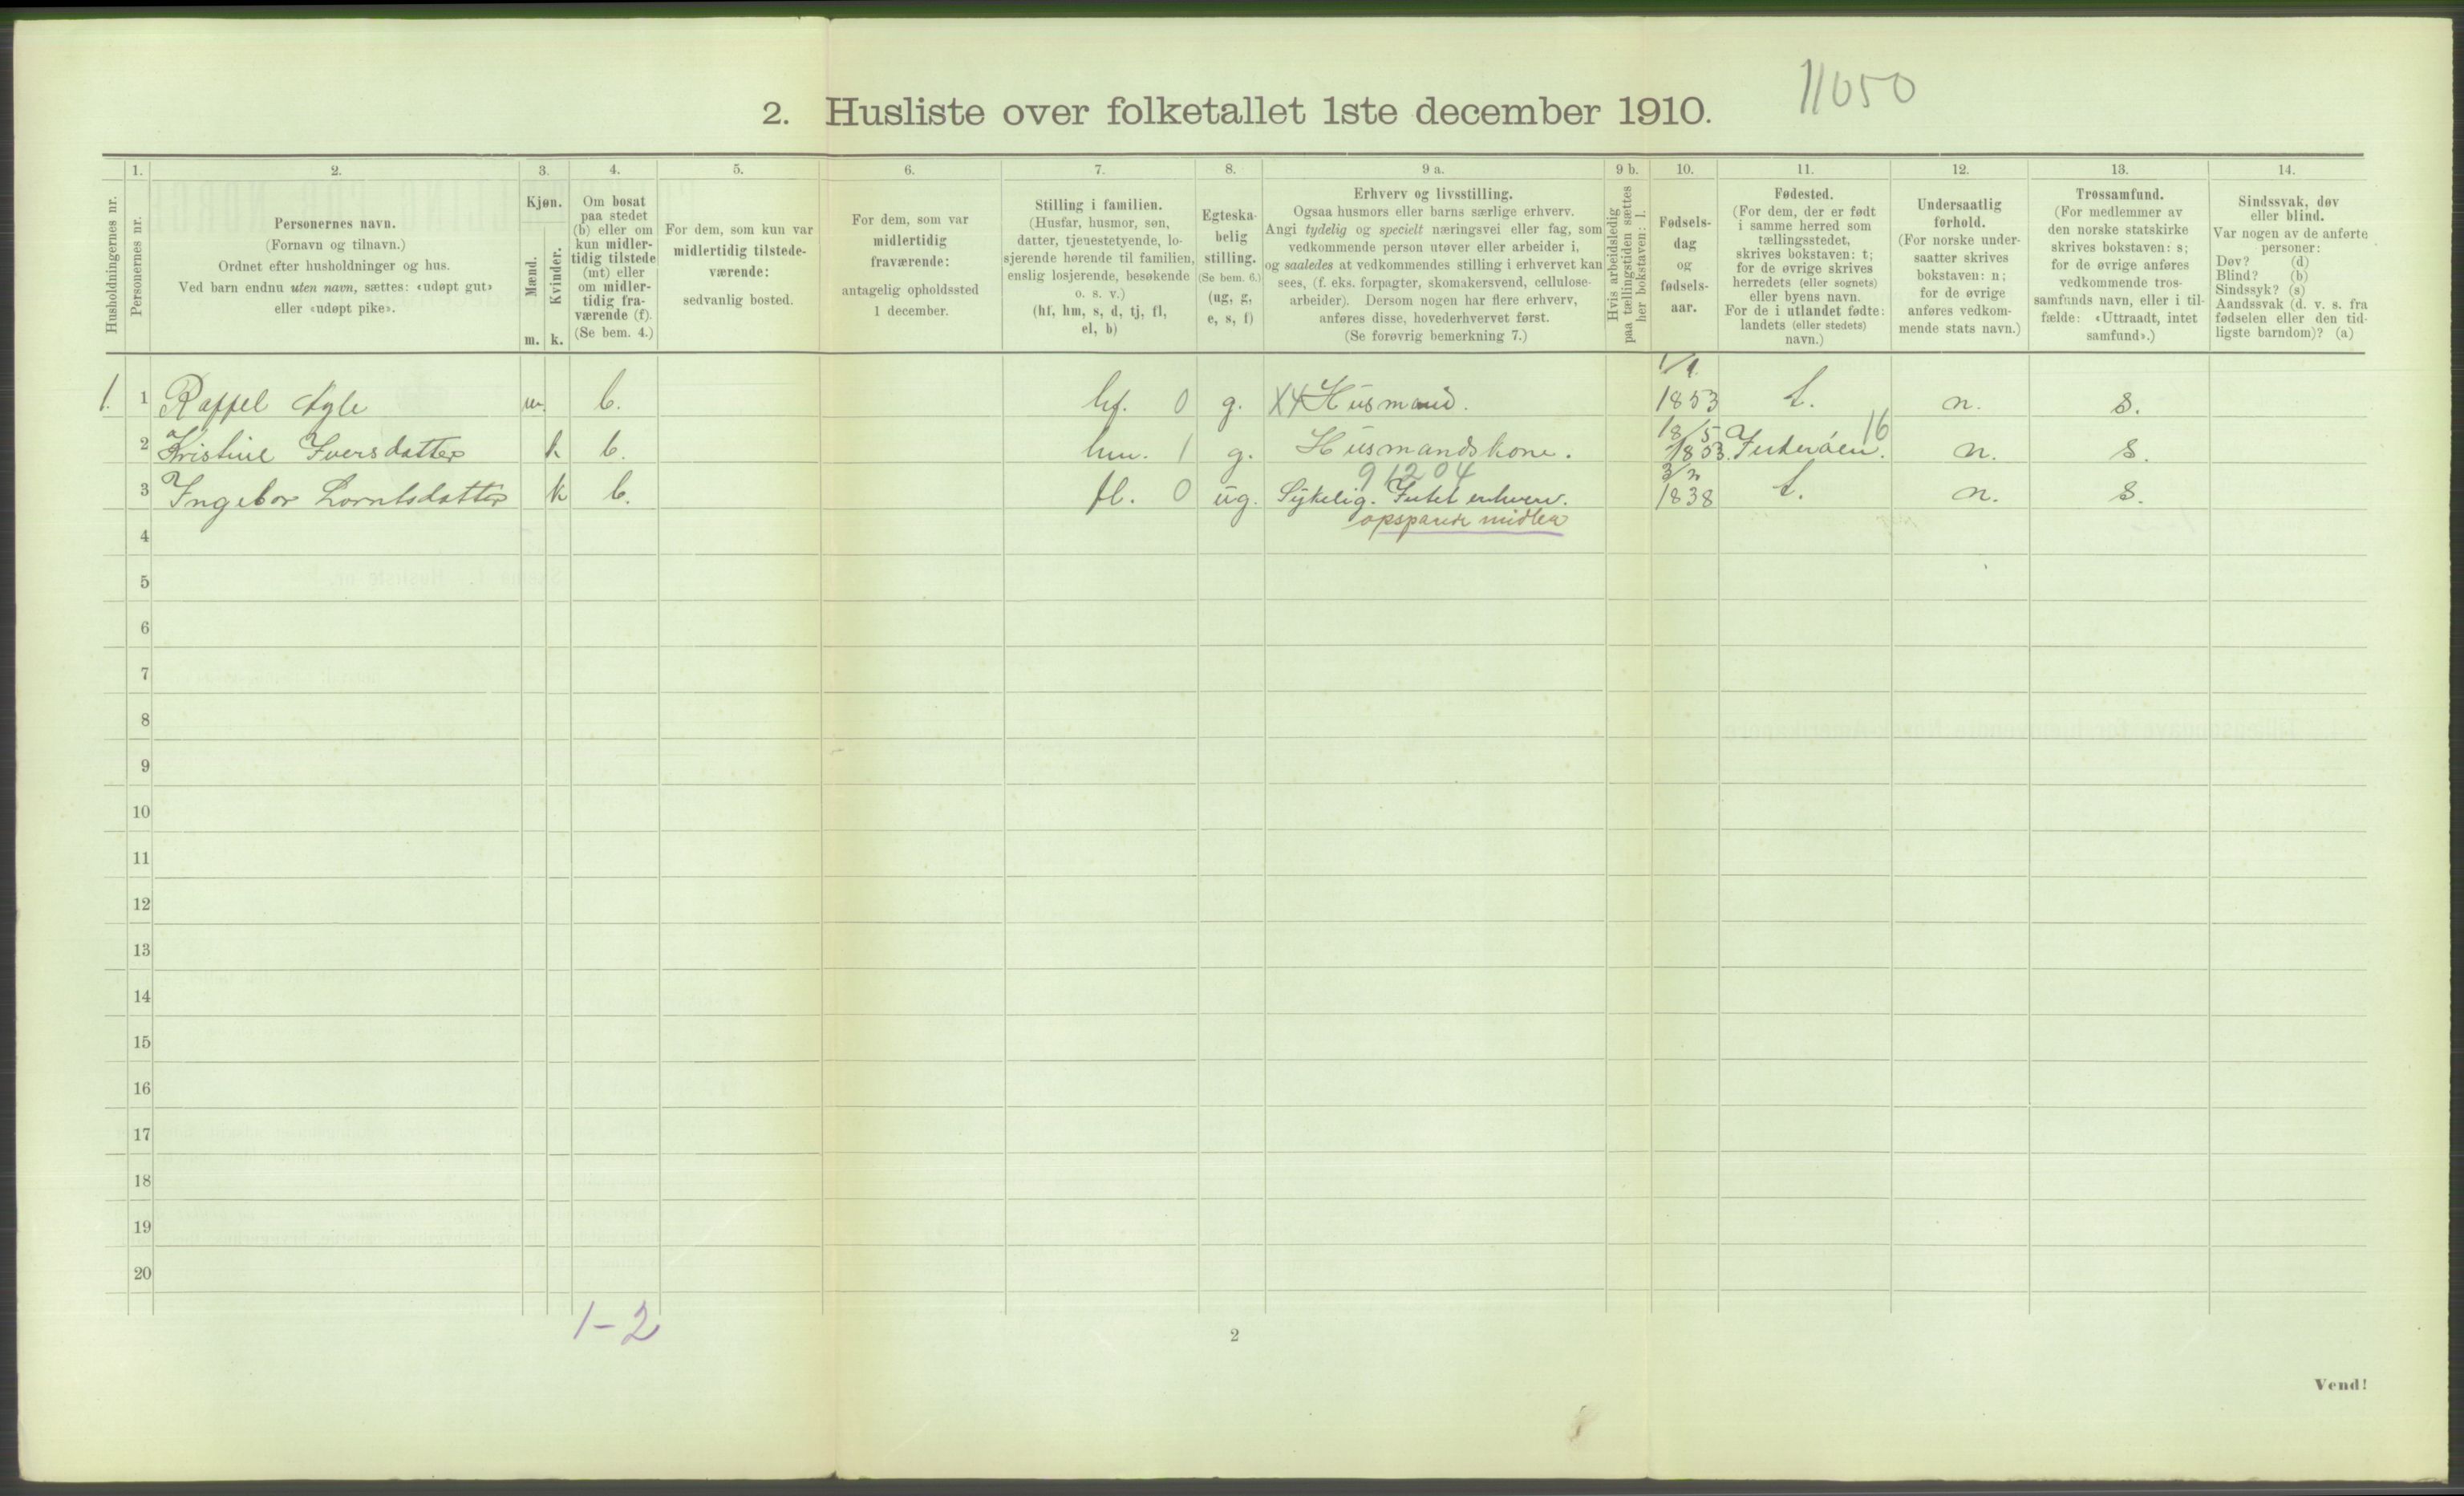 11050
2. Husliste over folketallet 1ste december 1910.
Husholdningernes nr.
1.
Personernes nr.
2.
Personernes navn.
(Fornavn og tilnavn.)
Ordnet efter husholdninger og hus.
Ved barn endnu uten navn, sættes: «udøpt gut»
eller «udøpt pike».
3.
Kjøn.
Mænd.
Kvinder.
m. k.
4.
Om bosat
paa stedet
(b) eller om
kun midler-
tidig tilstede
(mt) eller
om midler-
tidig fra-
værende (f).
(Se bem. 4.)
5.
For dem, som kun var
midlertidig tilstede-
værende:
sedvanlig bosted.
6.
For dem, som var
midlertidig
fraværende:
antagelig opholdssted
1 december.
7.
Stilling i familien.
(Husfar, husmor, søn,
datter, tjenestetyende, lo-
sjerende hørende til familien,
enslig losjerende, besøkende
o. s. v.)
(hf, hm, s, d, tj, fl,
el, b)
8.
Egteska-
belig
stilling.
(Se bem. 6.)
(ug, g,
e, s, f)
9 a.
Erhverv og livsstilling.
Ogsaa husmors eller barns særlige erhverv.
Angi tydelig og specielt næringsvei eller fag, som
vedkommende person utøver eller arbeider i,
og saaledes at vedkommendes stilling i erhvervet kan
sees, (f. eks. forpagter, skomakersvend, cellulose-
arbeider). Dersom nogen har flere erhverv,
anføres disse, hovederhvervet først.
(Se forøvrig bemerkning 7.)
9 b.
Hvis arbeidsledig
paa tællingstiden sættes
her bokstaven: l.
10.
Fødsels-
dag
og
fødsels-
aar.
11.
Fødested.
(For dem, der er født
i samme herred som
tællingsstedet,
skrives bokstaven: t;
for de øvrige skrives
herredets (eller sognets)
eller byens navn.
For de i utlandet fødte:
landets (eller stedets)
navn.)
12.
Undersaatlig
forhold.
(For norske under-
saatter skrives
bokstaven: n;
for de øvrige
anføres vedkom-
mende stats navn.)
13.
Trossamfund.
(For medlemmer av
den norske statskirke
skrives bokstaven: s;
for de øvrige anføres
vedkommende tros-
samfunds navn, eller i til-
fælde: «Uttraadt, intet
samfund».)
14.
Sindssvak, døv
eller blind.
Var nogen av de anførte
personer:
Døv? (d)
Blind? (b)
Sindssyk? (s)
Aandssvak (d. v. s. fra
fødselen eller den tid-
ligste barndom)? (a)
1/1
1. 1 m. b. hf. 0 g. X4 Husmand. 1853 t. n. s.
18/5 16
2 Kristine Iversdatter k b. hm. 1 g. Husmandskone. 1853. Inderøen. n. s.
91204
3 Ingebor Lorntsdatter k b. fl. 0 ug. Sykelig. Intet erhverv. 1838 t. n. s.
opsparede midler
4
5
6
7
8
9
10
11
12
13
14
15
16
17
18
19
20
1-2
2
Vend!